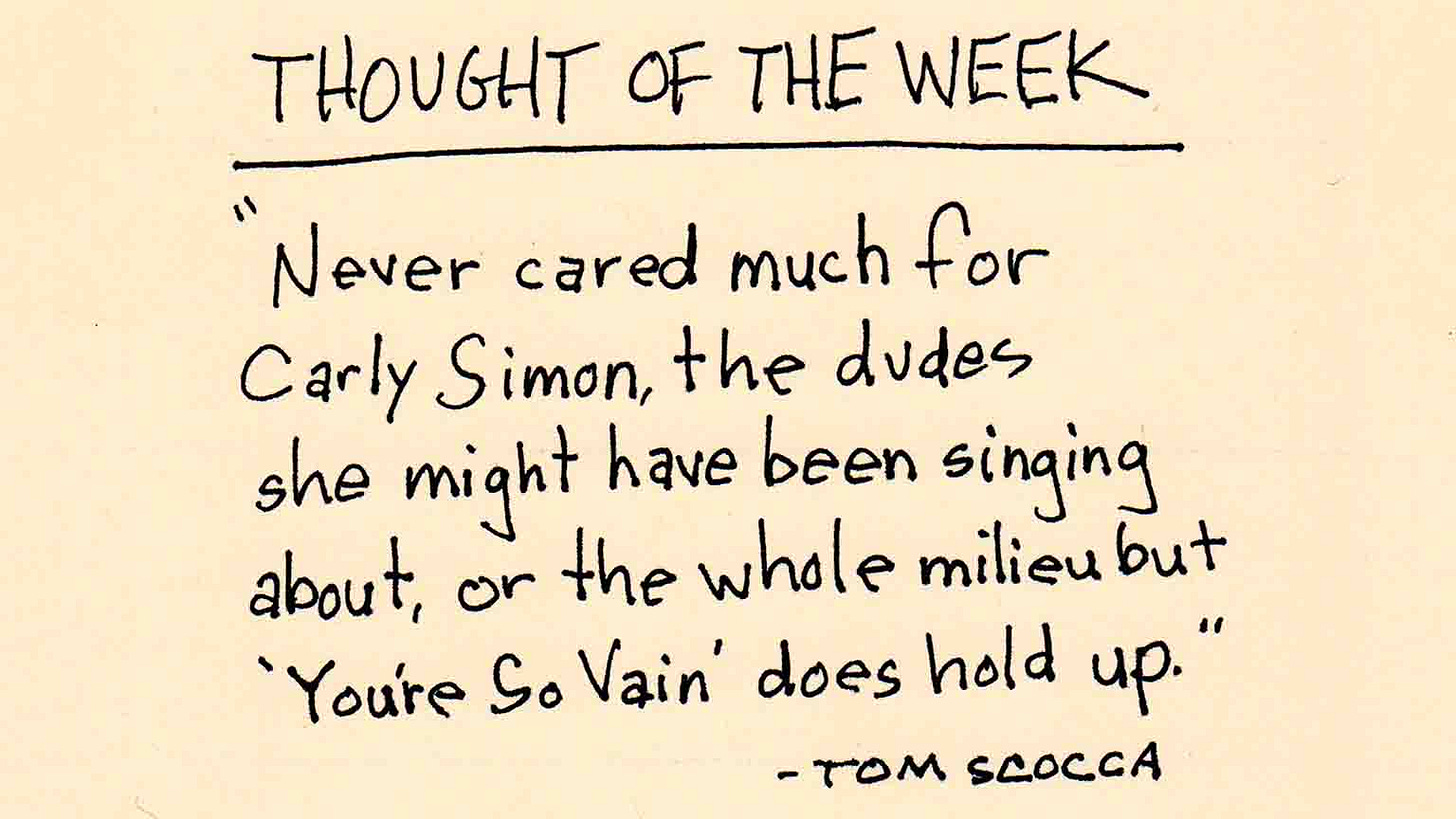 THOUGHT OF THE WEEK
"Never cared much for
Carly Simon, the dudes
she might have been singing
about, or the whole milieu but
`You're So Vain' does hold up."
- TOM SCOCCA